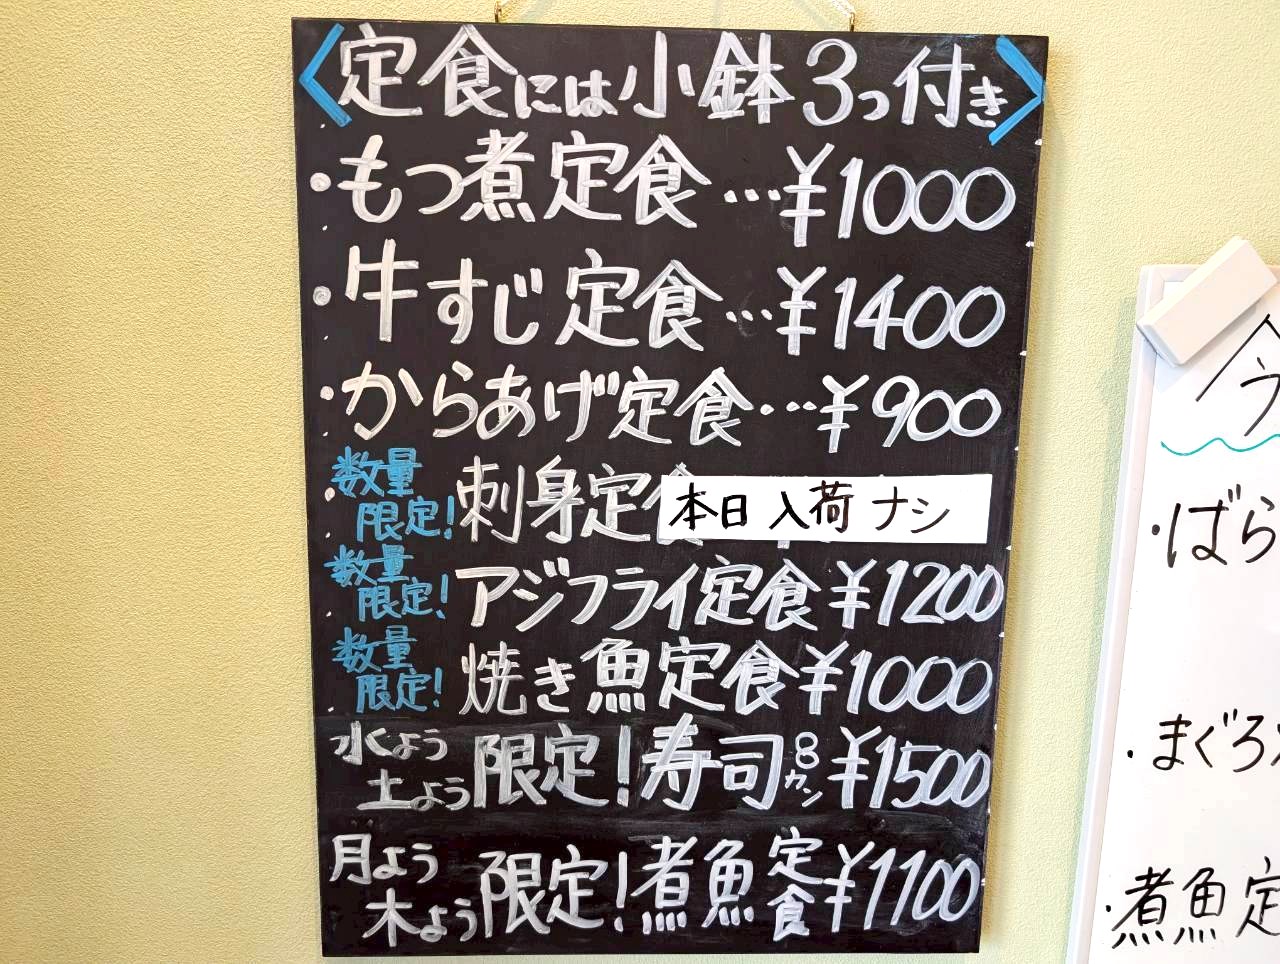 〈定食には小鉢3つ付き〉
・もつ煮定食…¥1000
・牛すじ定食…¥1400
・からあげ定食…¥900
・数量限定!刺身定食 本日入荷ナシ
・数量限定!アジフライ定食¥1200
・数量限定!焼き魚定食¥1000
水よう土よう限定!寿司8カン¥1500
月よう木よう限定!煮魚定食¥1100
・ばら
・まぐろ
・煮魚定